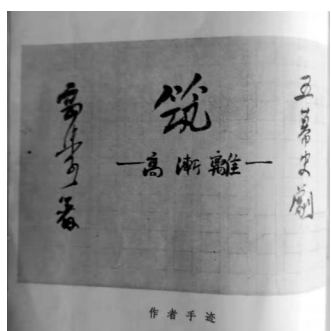 五幕史劇
筑
—高漸離—
著
作者手迹